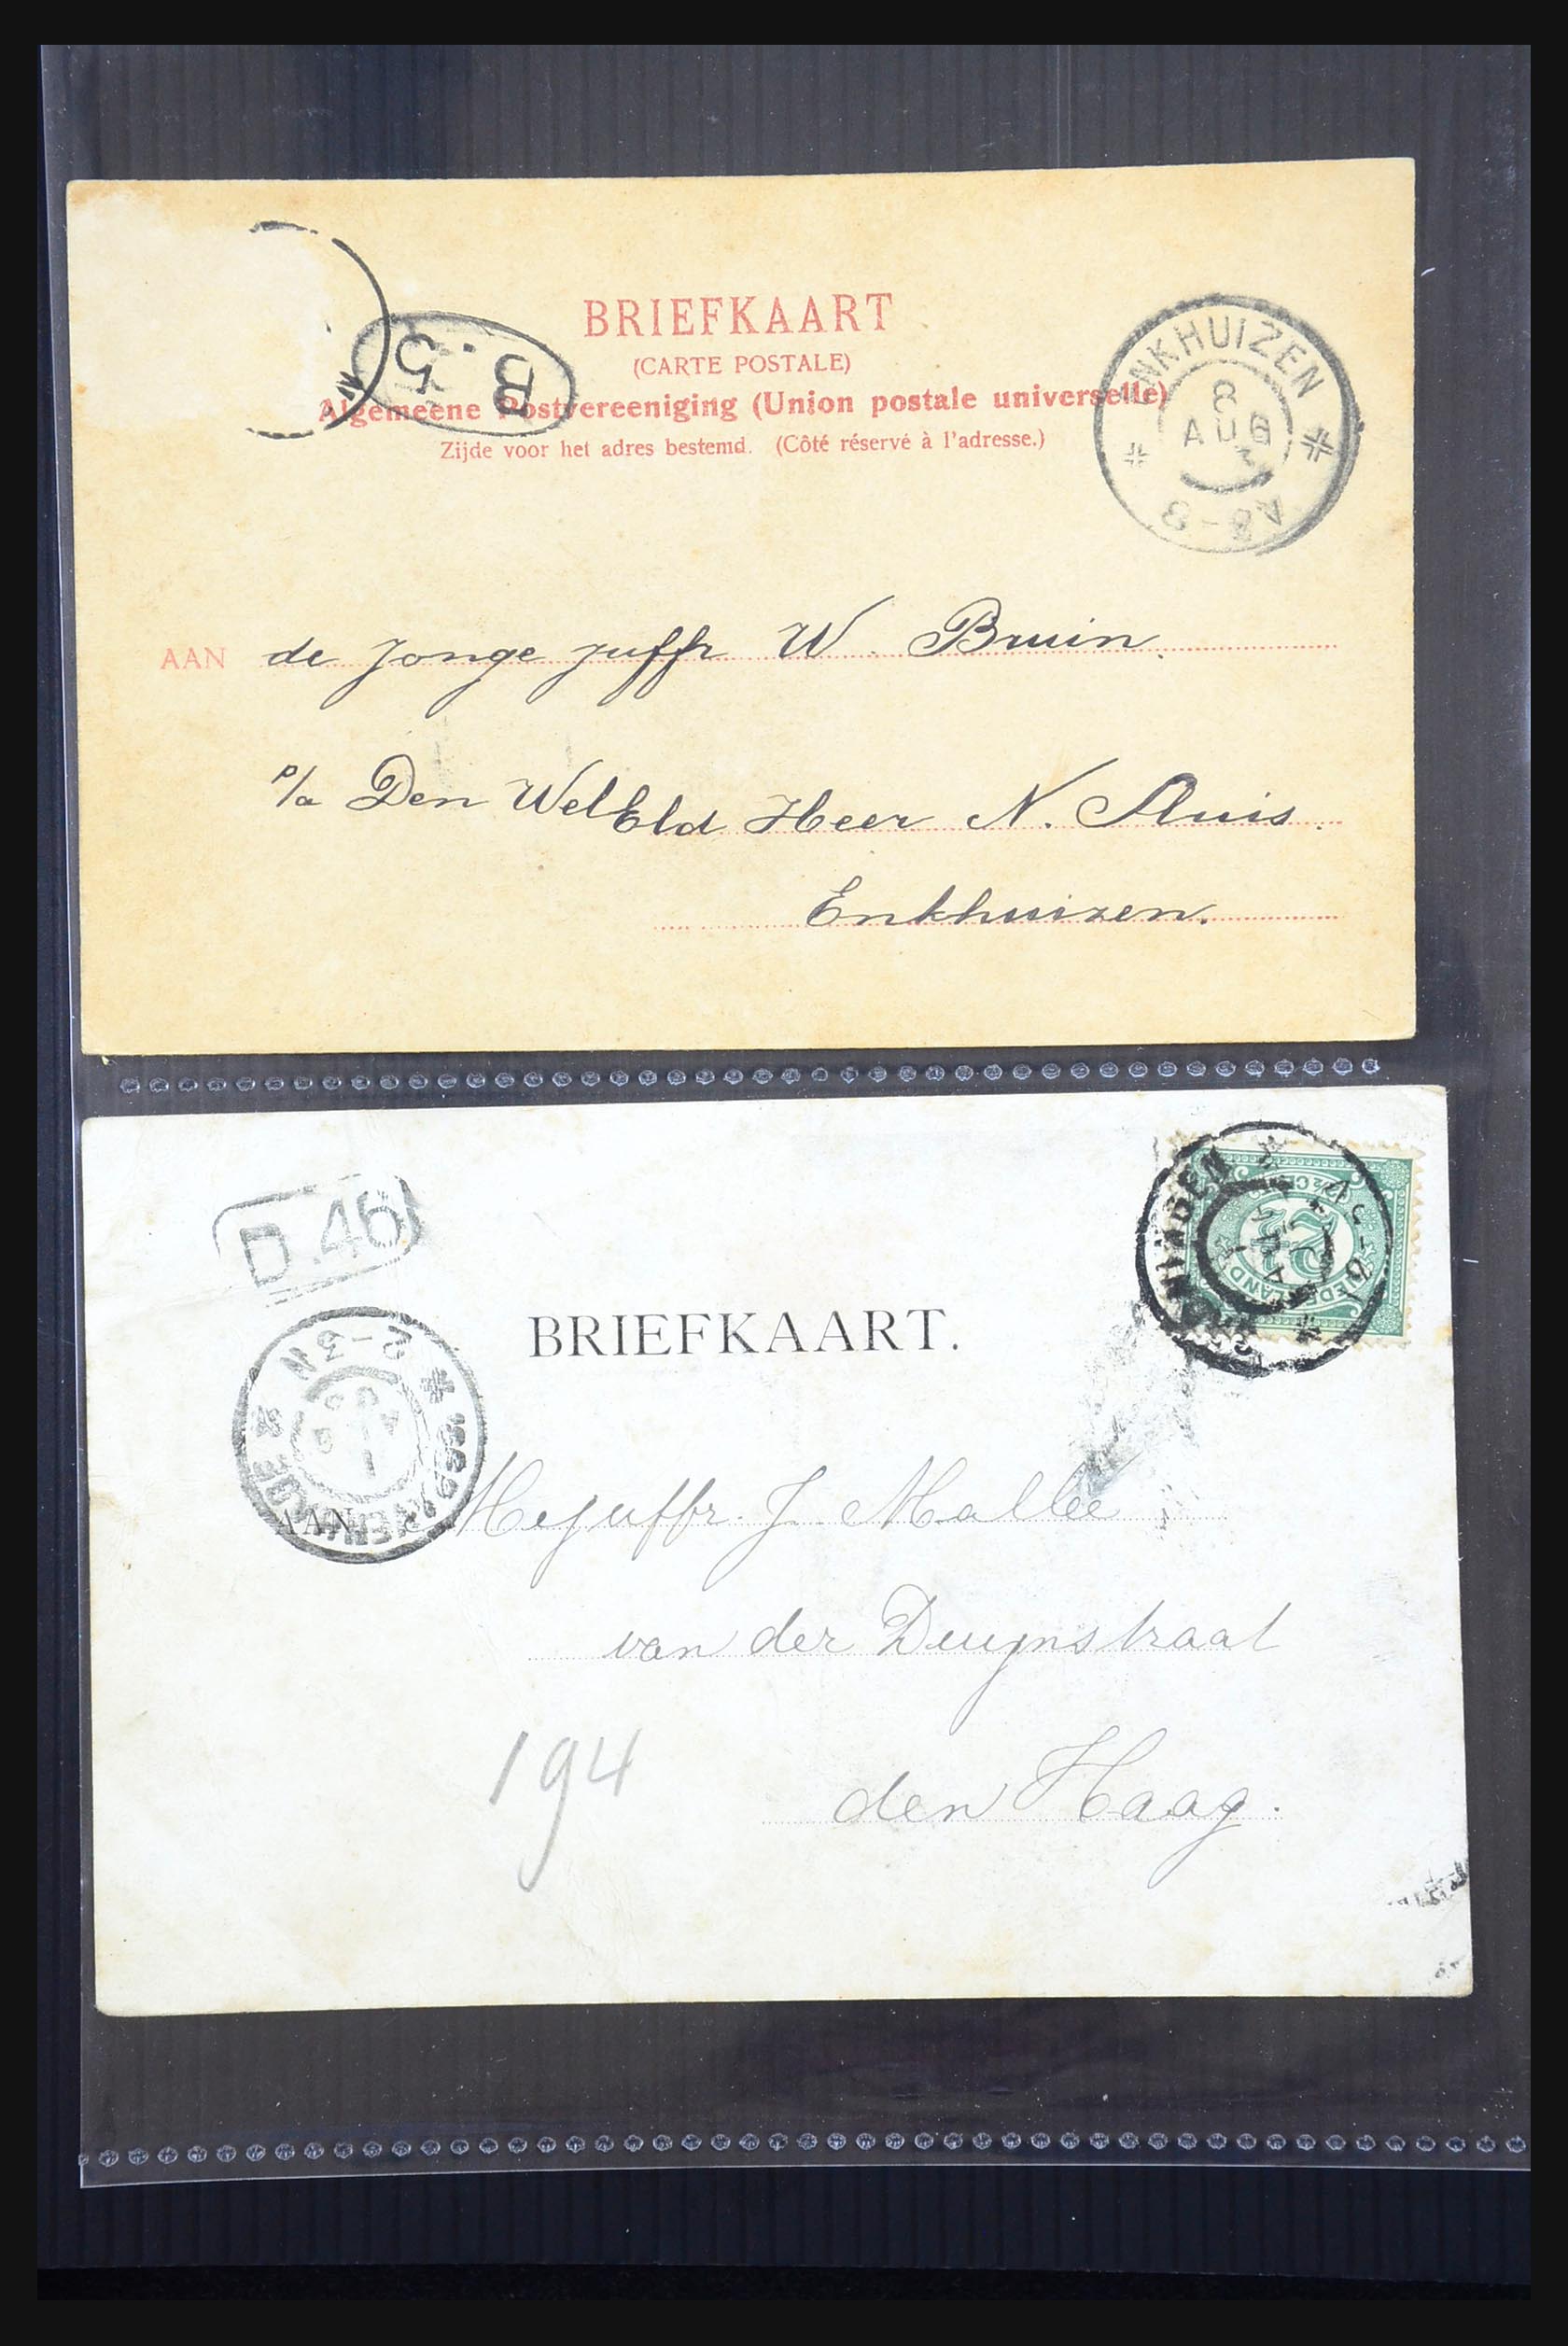 B. 5
BRIEFKAART
(CARTE POSTALE)
Algemeene Postvereeniging (Union postale universelle)
Zijde voor het adres bestemd. (Côté réservé à l'adresse.)
ENKHUIZEN
8
AUG
8-8V
AAN de Jonge juffr W. Bruin.
p/a Den WelEld Heer N. Sluis.
Enkhuizen.
D.46
BRIEFKAART.
2½
NEDERLAND
2-3N
AAN Mejuffr. J. Mallée
van der Duynstraat
194
den Haag.